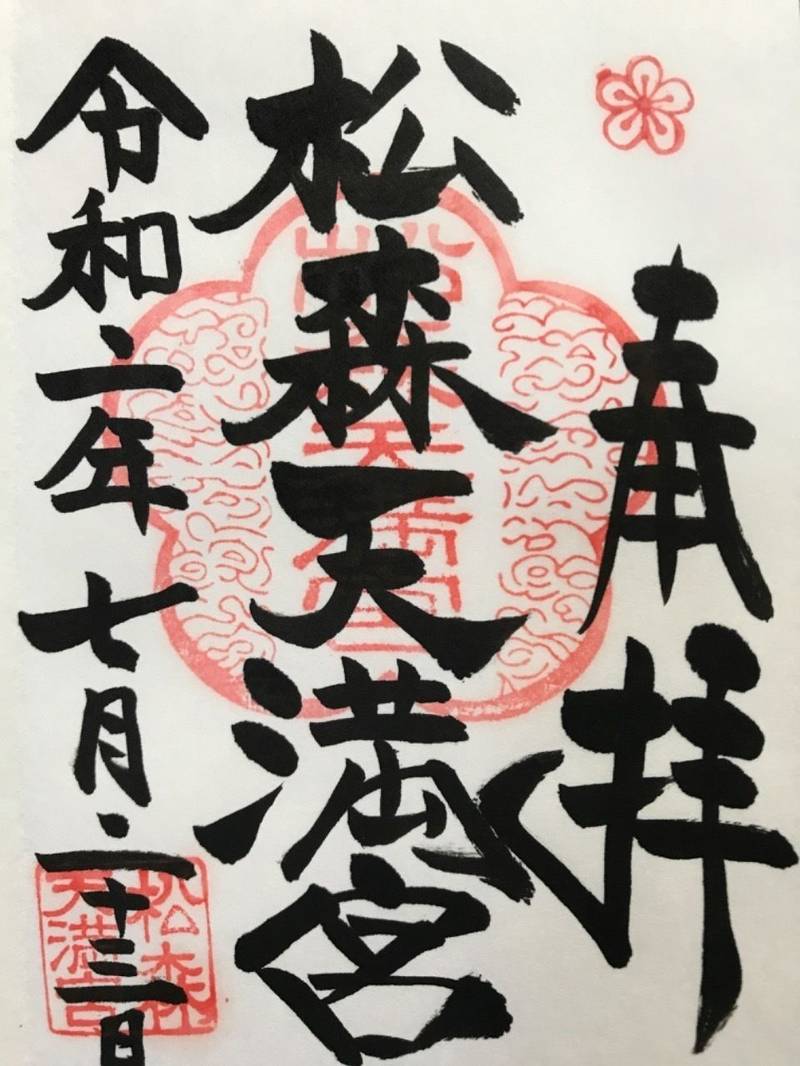 奉拝
松森天満宮
令和二年七月二十三日
松森
天満宮